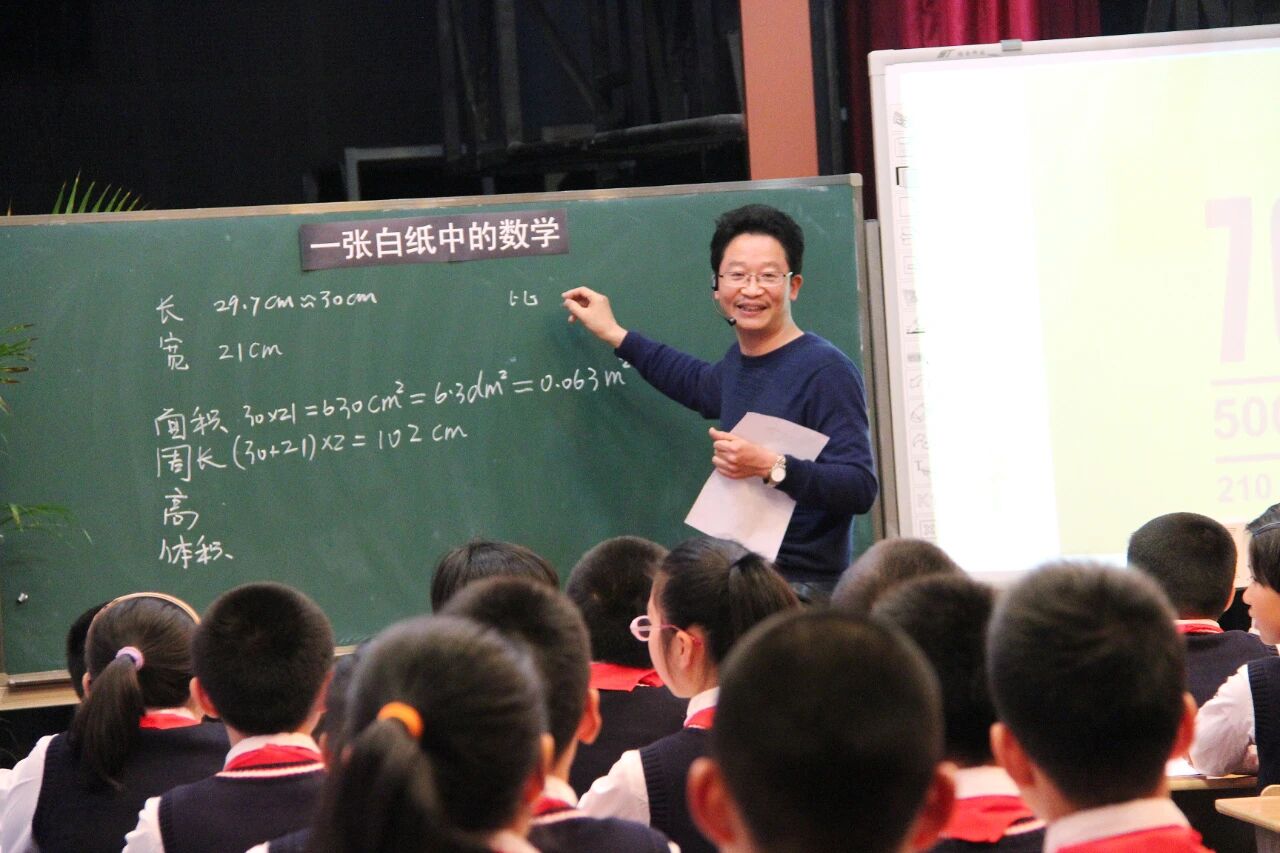 一张白纸中的数学
长 29.7cm≈30cm 比
宽 21cm
面积 30×21=630cm²=6.3dm²=0.063m²
周长(30+21)×2=102cm
高
体积
10
500
210